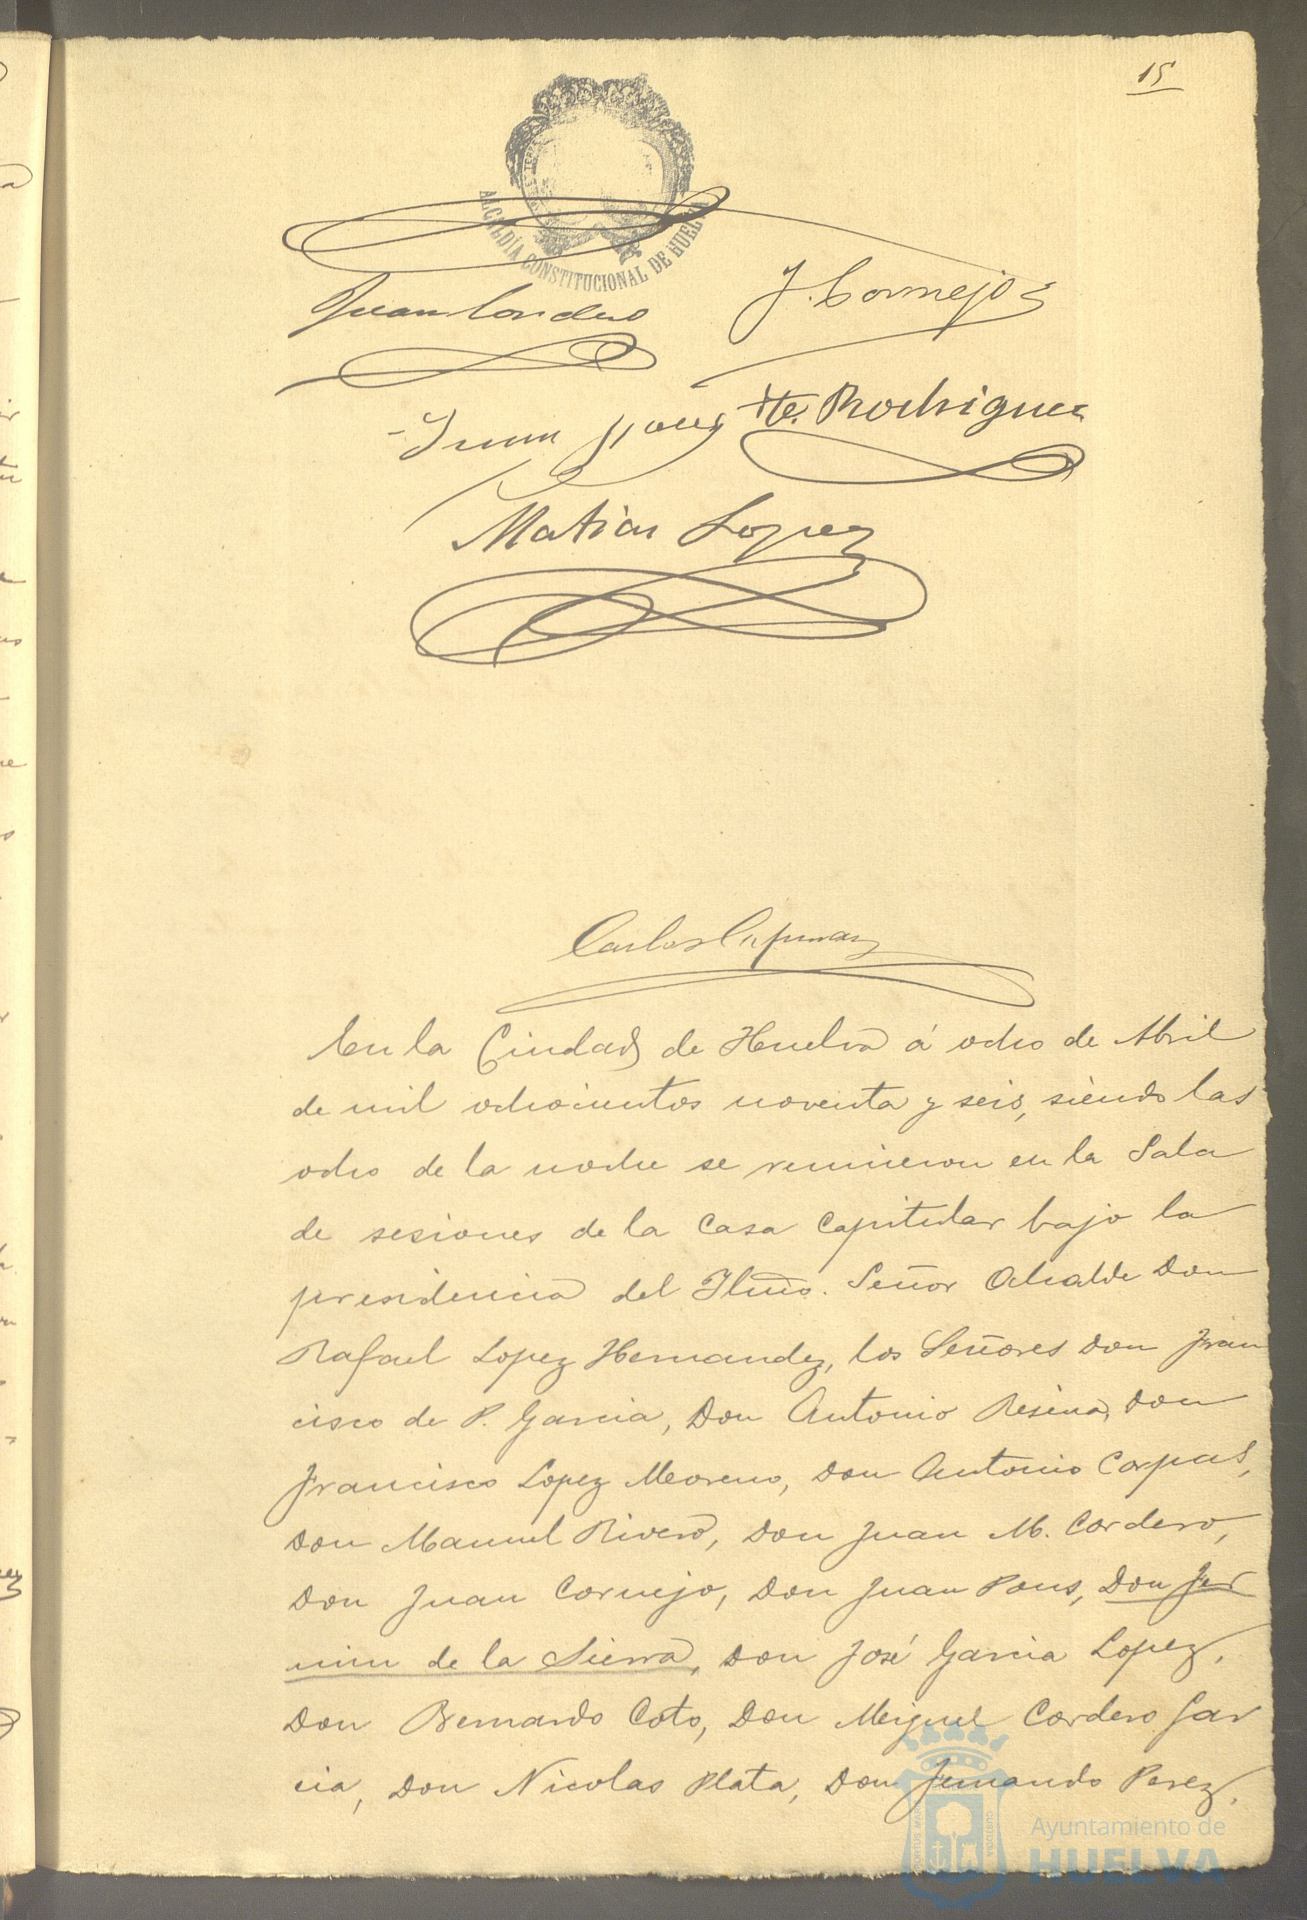 15
ALCALDÍA CONSTITUCIONAL DE HUELVA
Juan Cordero
J. Cornejo
Juan Pons
Rodriguez
Matias Lopez
Carlos
En la Ciudad de Huelva á ocho de Abril
de mil ochocientos noventa y seis, siendo las
ocho de la noche se reunieron en la Sala
de sesiones de la Casa Capitular bajo la
presidencia del Iltmo. Señor Alcalde Don
Rafael Lopez Hernandez, los Señores Don Fran
cisco de P. Garcia, Don Antonio Resina, Don
Francisco Lopez Moreno, Don Antonio Corpas,
Don Manuel Rivero, Don Juan M. Cordero,
Don Juan Cornejo, Don Juan Pons, Don Fer
min de la Sierra, Don José Garcia Lopez,
Don Bernardo Coto, Don Miguel Cordero Gar
cia, Don Nicolas Plata, Don Fernando Perez,
Ayuntamiento de
HUELVA